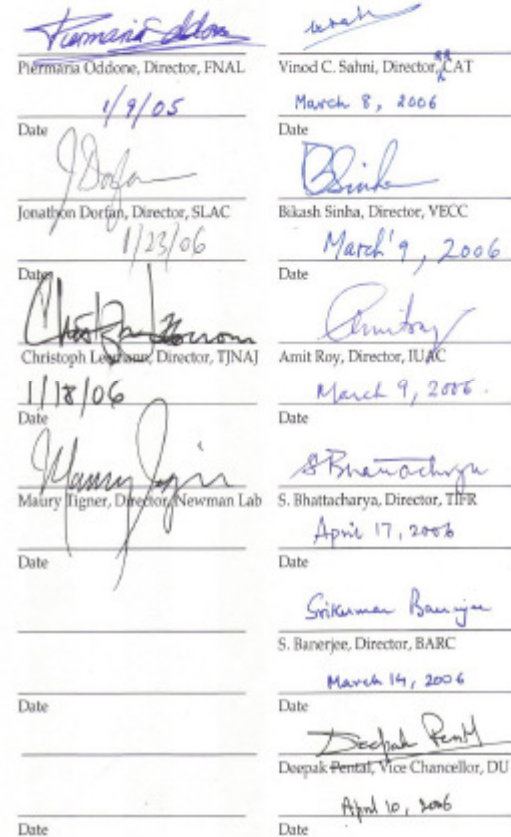 Piermaria Oddone
Piermaria Oddone, Director, FNAL
1/9/05
Date
J Dorfan
Jonathon Dorfan, Director, SLAC
1/23/06
Date
Christoph Leemann, Director, TJNAJ
1/18/06
Date
Maury Tigner
Maury Tigner, Director, Newman Lab
Date
Date
Date
Vinod C. Sahni, Director, RRCAT
March 8, 2006
Date
B Sinha
Bikash Sinha, Director, VECC
March 9, 2006
Date
Amit Roy
Amit Roy, Director, IUAC
March 9, 2006.
Date
S Bhattacharya
S. Bhattacharya, Director, TIFR
April 17, 2006
Date
Srikumar Banerjee
S. Banerjee, Director, BARC
March 14, 2006
Date
Deepak Pental
Deepak Pental, Vice Chancellor, DU
April 10, 2006
Date